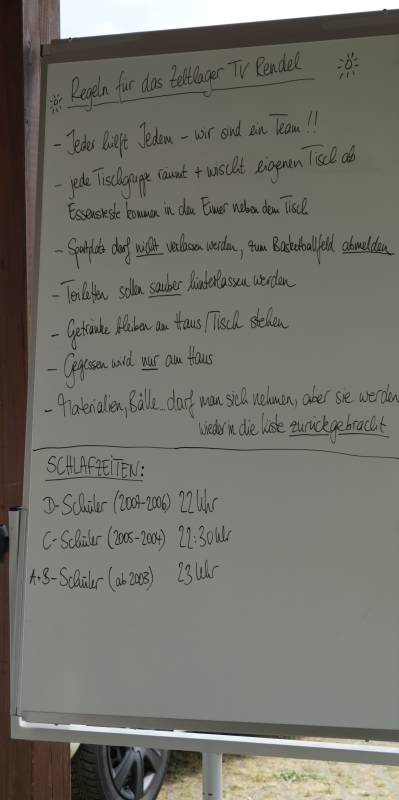 Regeln für das Zeltlager TV Rendel
- Jeder hilft Jedem - wir sind ein Team!!
- jede Tischgruppe räumt + wischt eigenen Tisch ab
Essensreste kommen in den Eimer neben dem Tisch
- Sportplatz darf nicht verlassen werden, zum Basketballfeld abmelden
- Toiletten sollen sauber hinterlassen werden
- Getränke bleiben am Haus/Tisch stehen
- Gegessen wird nur am Haus
- Materialien, Bälle... darf man sich nehmen, aber sie werden
wieder in die Kiste zurückgebracht
SCHLAFZEITEN:
D-Schüler (2007-2006) 22 Uhr
C-Schüler (2005-2004) 22:30 Uhr
A+B-Schüler (ab 2003) 23 Uhr